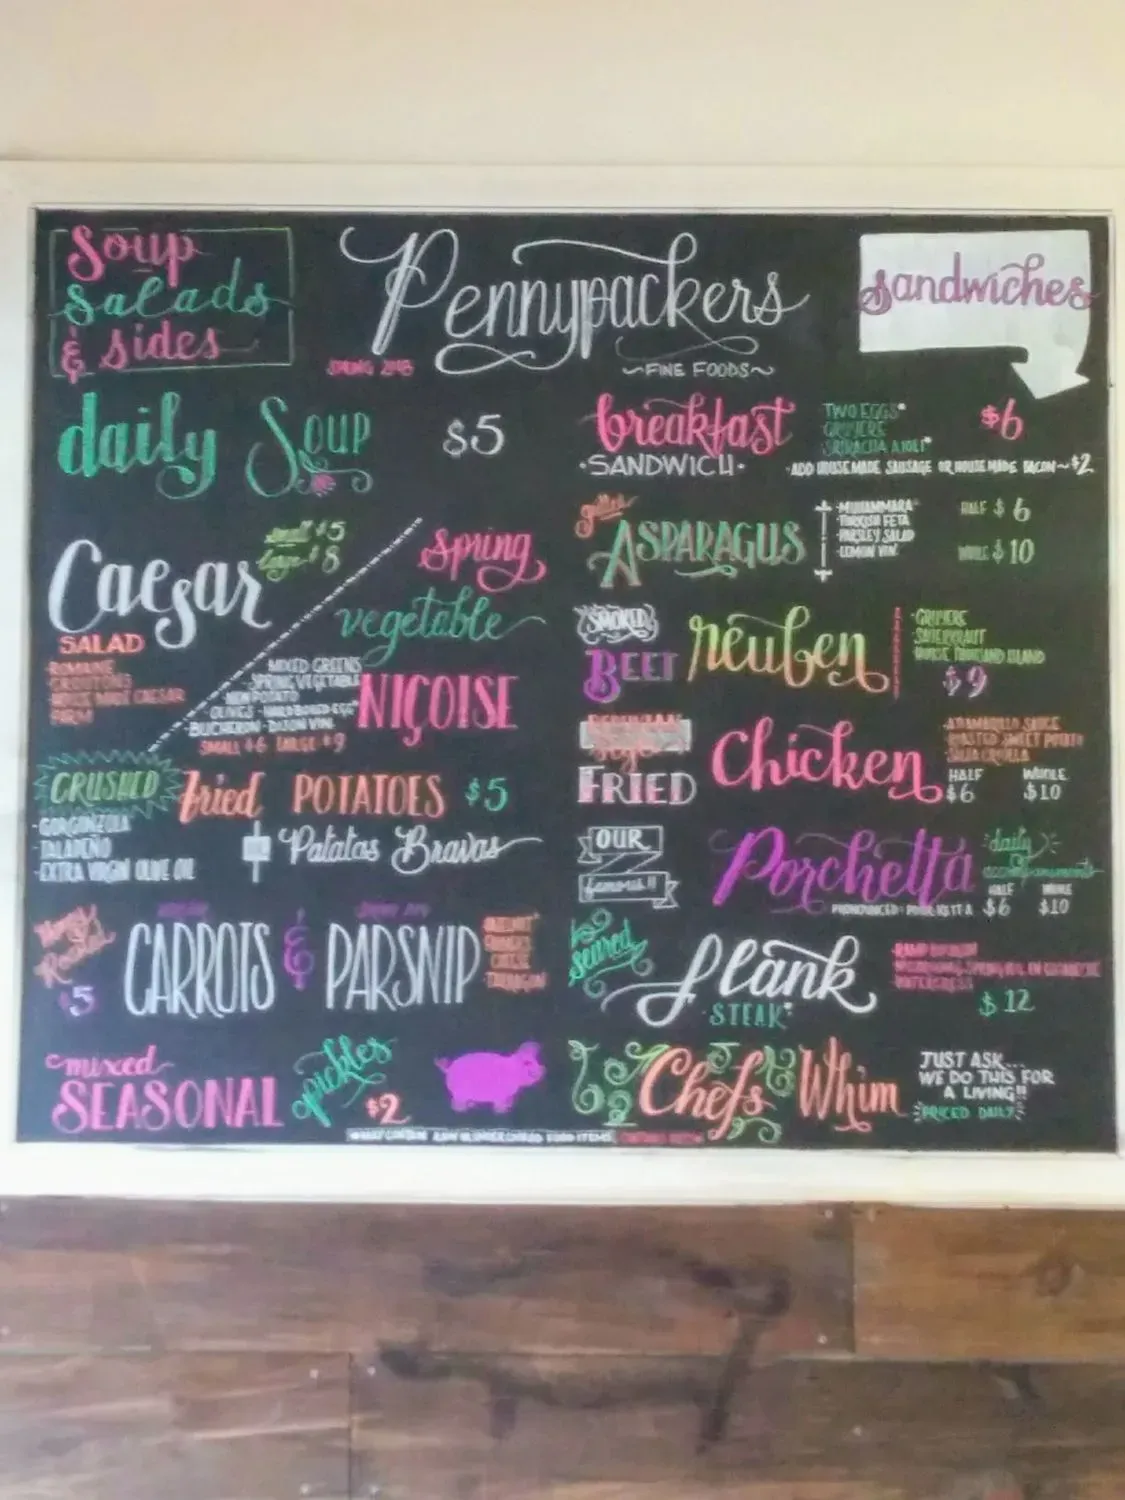 Soup
Salads
& Sides
Pennypackers
~FINE FOODS~
Sandwiches
daily Soup $5
Caesar
small $5
large $8
SALAD
ROMAINE
CROUTONS
HOUSE MADE CAESAR
PARM
Spring
vegetable
NIÇOISE
MIXED GREENS
SPRING VEGETABLE
NEW POTATO
OLIVES · HARD BOILED EGG*
BUCHERON · DIJON VIN.
SMALL $6 LARGE $9
CRUSHED fried POTATOES $5
· GORGONZOLA
· JALAPEÑO
· EXTRA VIRGIN OLIVE OIL
Patatas Bravas
Honey
Roasted
$5
CARROTS & PARSNIP
TARRAGON
mixed
SEASONAL
pickles
$2
breakfast
· SANDWICH ·
TWO EGGS*
GRUYERE
SRIRACHA AIOLI*
$6
· ADD HOUSE MADE SAUSAGE OR HOUSE MADE BACON ~ $2
grilled
ASPARAGUS
· MUHAMMARA
· TURKISH FETA
· PARSLEY SALAD
· LEMON VIN.
HALF $6
WHOLE $10
SMOKED
BEET
reuben
· GRUYERE
· SAUERKRAUT
· HOUSE THOUSAND ISLAND
$9
PERUVIAN
FRIED
Chicken
· AJI AMARILLO SAUCE
· ROASTED SWEET POTATO
· SALSA CRIOLLA
HALF $6
WHOLE $10
OUR
famous!!
Porchetta
daily
accompaniments
HALF $6
WHOLE $10
Seared
flank
STEAK*
WATERCRESS
$12
Chef's Whim
JUST ASK...
WE DO THIS FOR
A LIVING!!
PRICED DAILY